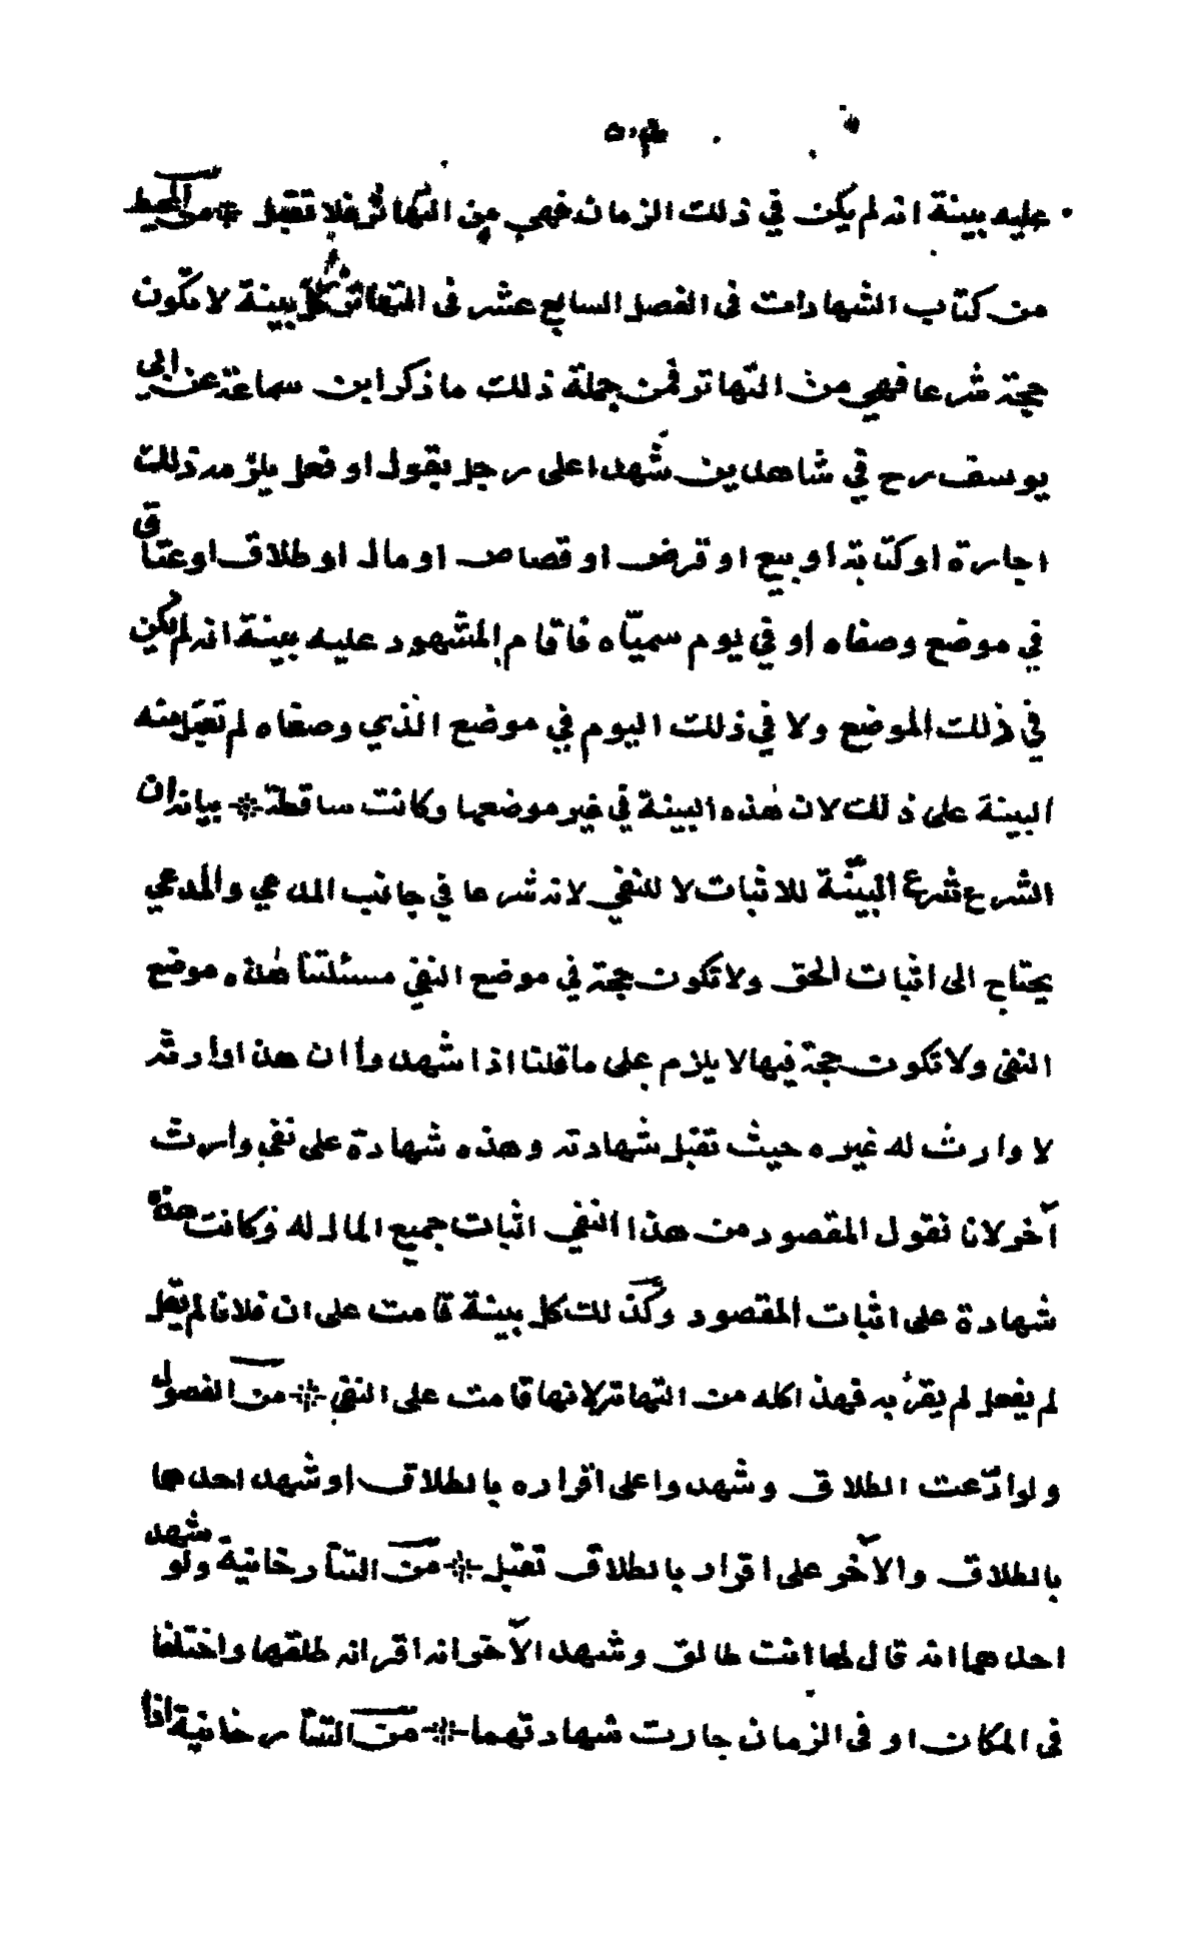 عليه بينة انه لم يكن في ذلك الزمان فهي من التهاتر فلا تقبل * من المحيط
من كتاب الشهادات فى الفصل السابع عشر فى التهاتر كل بينة لا تكون
حجة شرعا فهي من التهاتر فمن جملة ذلك ما ذكر ابن سماعة عن ابى
يوسف رح في شاهدين شهدا على رجل بقول او فعل يلزمه ذلك
اجارة او كتابة او بيع او قرض او قصاص او مال او طلاق او عتاق
في موضع وصفاه او في يوم سميّاه فاقام المشهود عليه بينة انه لم يكن
في ذلك الموضع ولا في ذلك اليوم في موضع الذي وصفاه لم تقبل منه
البينة على ذلك لان هذه البينة في غير موضعها وكانت ساقطة * بيانه ان
الشرع شرع البيّنة للاثبات لا للنفي لانه شرعا في جانب المدعي والمدعي
يحتاج الى اثبات الحق ولا تكون حجة في موضع النفي مسئلتنا هذه موضع
النفى ولا تكون حجة فيها لا يلزم على ما قلنا اذا شهدوا ان هذا وارثه
لا وارث له غيره حيث تقبل شهادته وهذه شهادة على نفي وارث
آخر لانا نقول المقصود من هذا النفي اثبات جميع المال له فكانت هذه
شهادة على اثبات المقصود وكذلك كل بينة قامت على ان فلانا لم يقل
لم يفعل لم يقرّ به فهذا كله من التهاتر لانها قامت على النفي * من الفصول
ولو ادّعت الطلاق وشهدوا على اقراره بالطلاق او شهد احدهما
بالطلاق والآخر على اقرار بالطلاق تقبل * من التتارخانية ولو شهد
احدهما انه قال لها انت طالق وشهد الآخر انه اقر انه طلقها واختلفا
فى المكان او فى الزمان جازت شهادتهما * من التتارخانية اذا